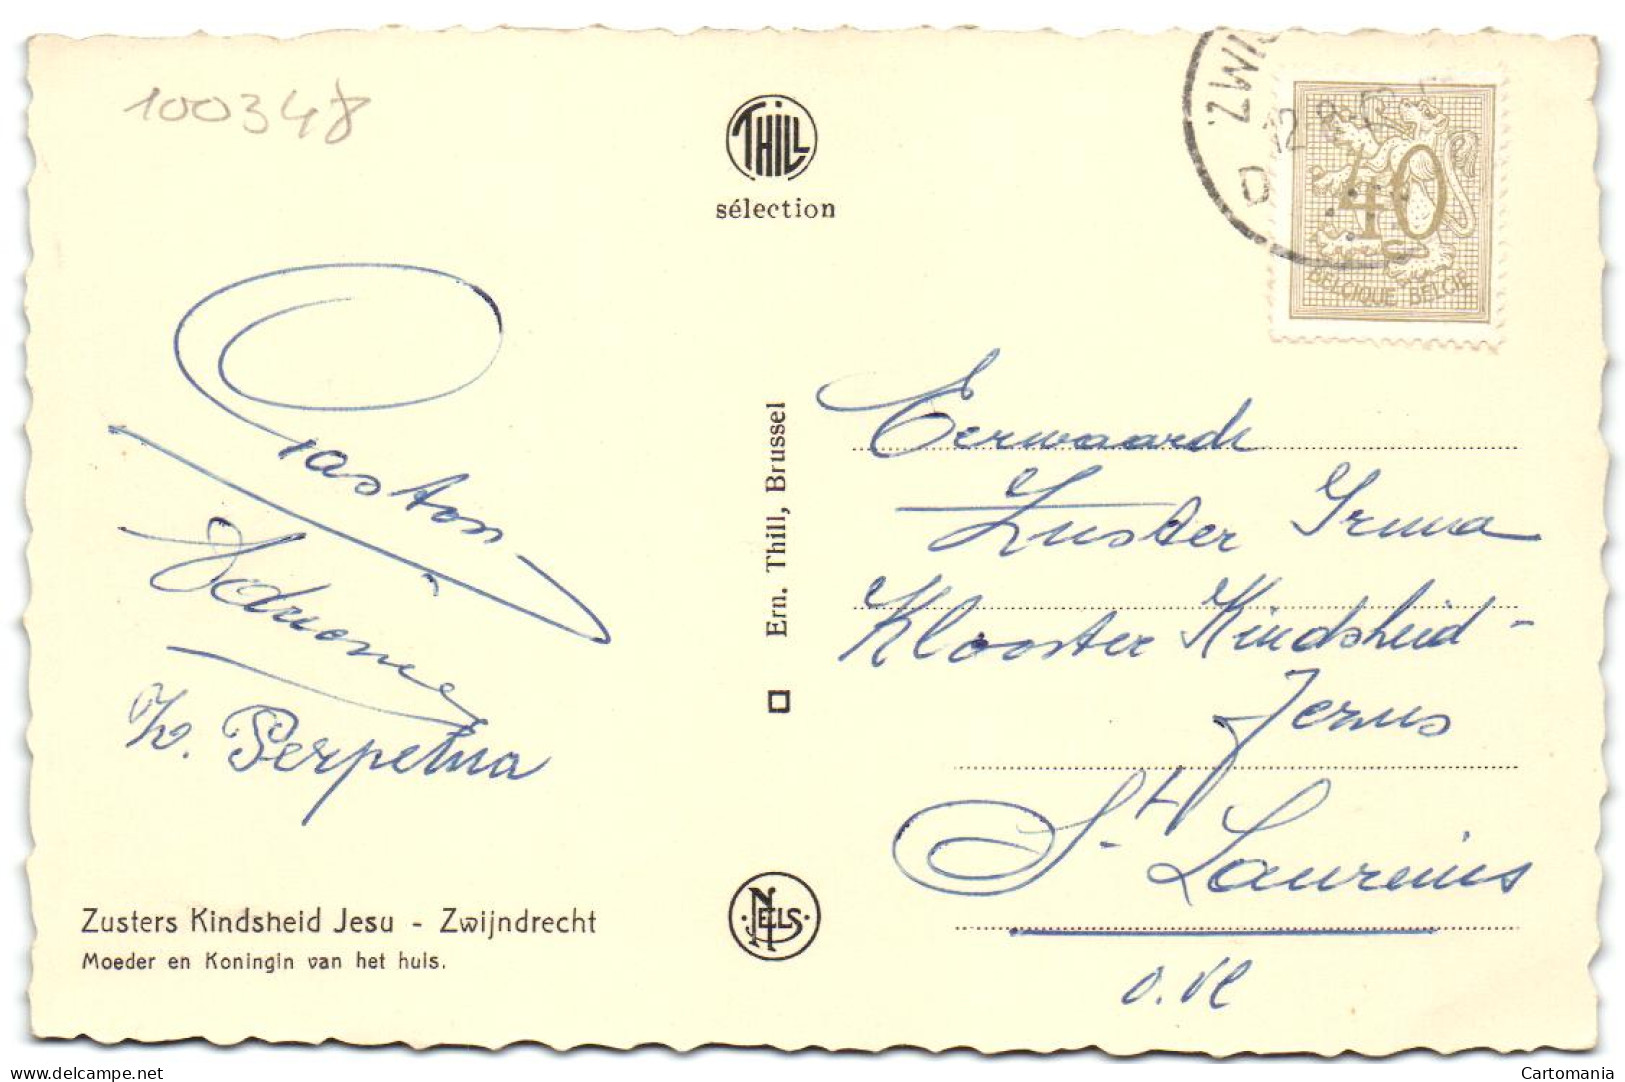 100348
THILL
sélection
ZWIJ
12 8
D
40
BELGIQUE BELGIE
Gaston
Adrienne
Zr. Perpetua
Zusters Kindsheid Jesu - Zwijndrecht
Moeder en Koningin van het huis.
Ern. Thill, Brussel
NELS
Eerwaarde
Zuster Irma
Klooster Kindsheid-
Jezus
St. Laureins
O. Vl
delcampe.net
Cartomania